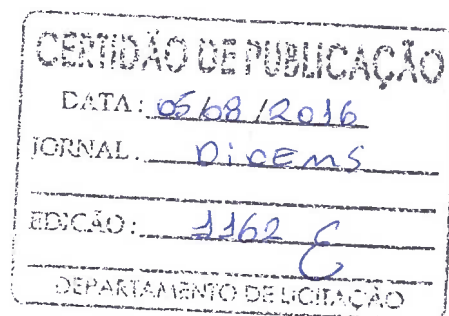 CERTIDÃO DE PUBLICAÇÃO
DATA: 05/08/2016
JORNAL: DiOEMS
EDIÇÃO: 1162
DEPARTAMENTO DE LICITAÇÃO